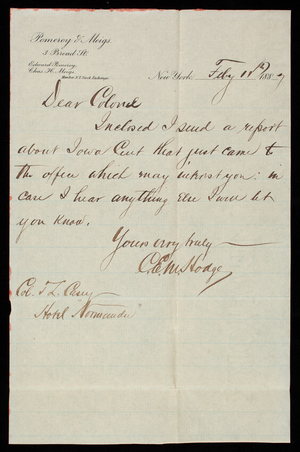 Pomeroy & Meigs.
3 Broad St.
Edward Pomeroy.
Chas. H. Meigs.
Member N.Y. Stock Exchange.
New York. Feby 11th 188
Dear Colonel
Inclosed I send a report
about Iowa Cent that just came to
the office which may interest you: in
case I hear anything else I will let
you know.
Yours very truly
Col. T. L. Casey
Hotel Normandie